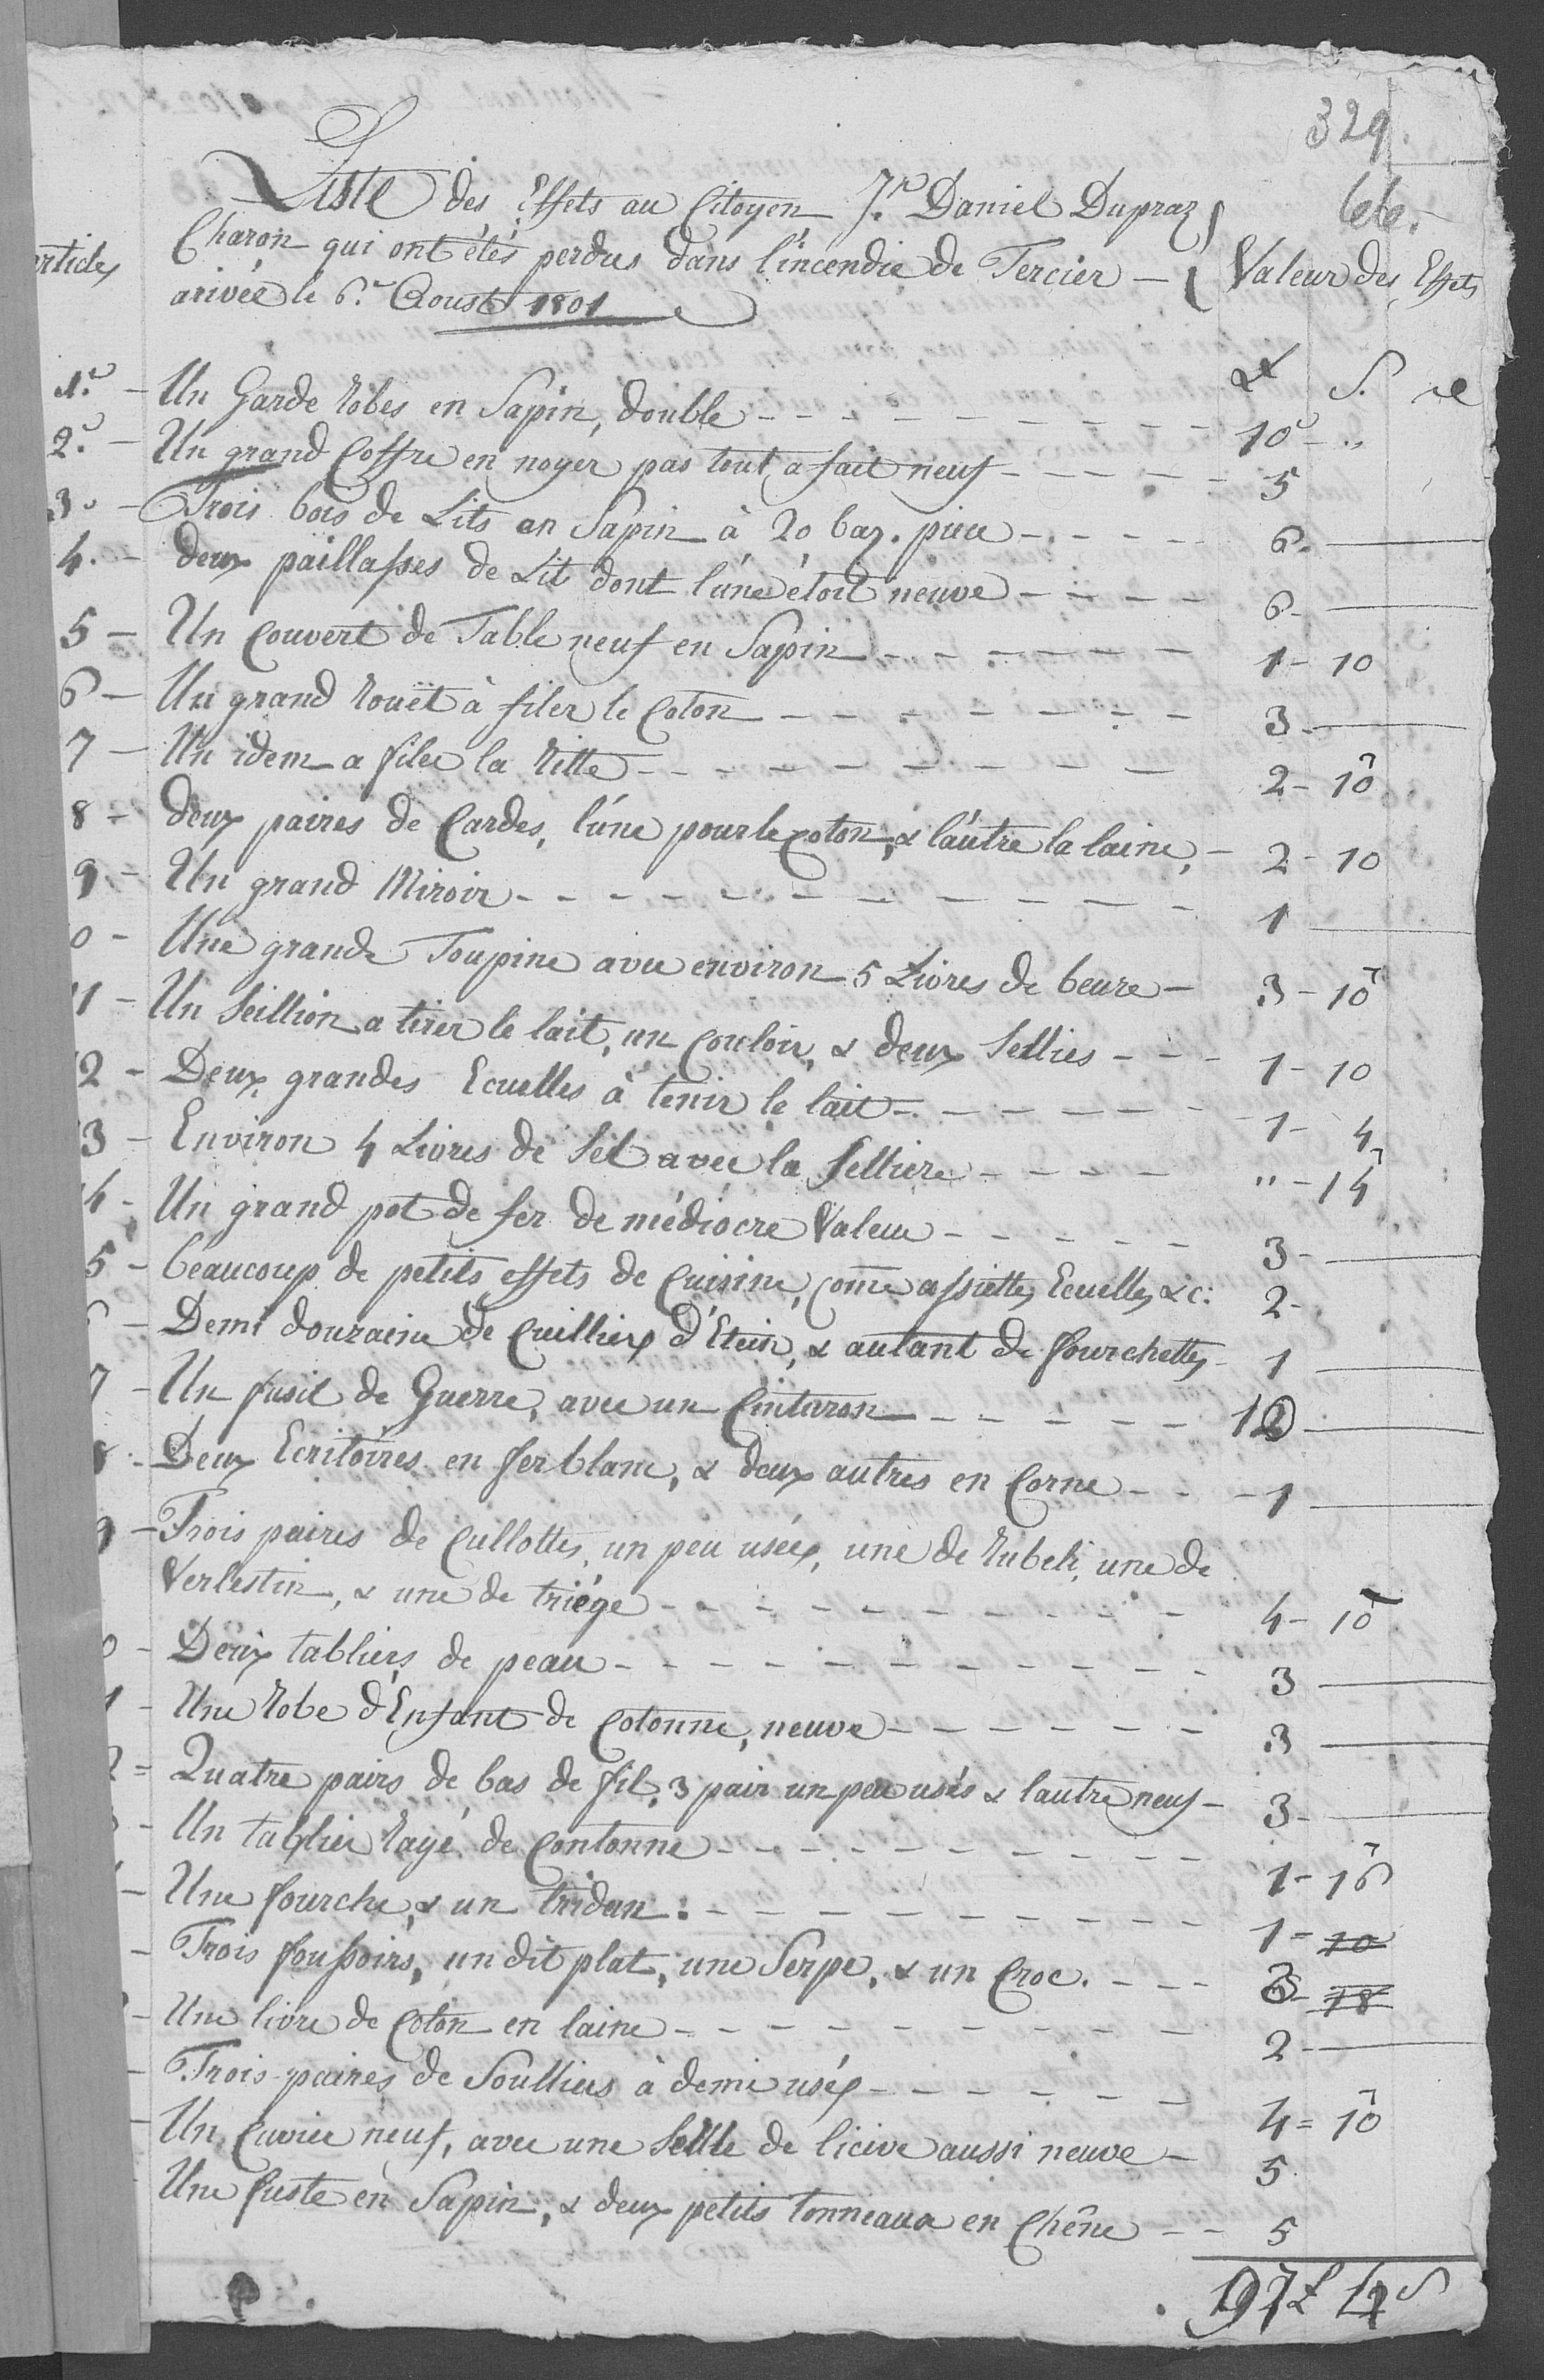 329.
66.
Liste des Effets au Citoyen Jn. Daniel Dupraz
Charon qui ont étés perdus dans l'incendie de Tercier —
arivée le 6.e Aoust 1801
articles
Valeur des Effets
£ S.
1.o — Un Garde robes en Sapin, double - - - 10 - "
2.o — Un grand Coffre en noyer pas tout a fait neuf - - - 5
3. — Trois bois de Lits en Sapin à 20 baz. piece - - - 6. —
4. — deux paillasses de Lit dont l'une étoit neuve - - - 6 —
5 — Un Couvert de Table neuf en Sapin - - - 1 - 10
6 — Un grand rouët à filer le Coton - - - 3 —
7 — Un idem a filer la ritte - - - 2 - 10
8 — deux paires de Cardes, l'une pour le Coton, & l'autre la laine, - 2 - 10
9 - Un grand Miroir - - - 1 —
0 - Une grande Toupine avec environ 5 Livres de beure - 3 - 10
11 - Un Seillion a tirer le lait, un Couloir, & deux Sellies - - - 1 - 10
12 - Deux grandes Ecuelles à tenir le lait - - - 1 - 4
13 - Environ 4 Livres de Sel avec la Selliere - - - " - 14
14 - Un grand pot de fer de médiocre Valeur - - - 3 —
5 - beaucoup de petits effets de Cuisine, Come assiettes, Ecuelles, &c: 2 -
6 - Demi douzaine de Cuilliers d'Etein, & autant de fourchettes - 1 —
7 - Un fusil de Guerre, avec un Cinturon - - - 12 —
8 - Deux Ecritoires en fer blanc, & deux autres en Corne - - - 1 —
9 - Trois paires de Cullottes, un peu usées, une de rubeli, une de
Verlestin, & une de triége - - - 4 - 10
0 - Deux tabliers de peau - - - 3 —
1 - Une robe d'Enfant de Cotonne, neuve - - - 3 —
2 = Quatre pairs de bas de fil, 3 pair un peu usés & lautre neuf - 3 —
- Un tablier rayé de Contonne - - - 1 - 16
- Une fourche, & un tridan : - - - 1 - 10
- Trois foussoirs, un dit plat, une Serpe, & un Croc. - - - 3 - 18
- Une livre de Coton en laine - - - 2 —
- Trois paires de Soulliers à demi usés - - - 4 = 10
- Un Cuvier neuf, avec une Seille de licive aussi neuve - 5
Une fuste en Sapin, & deux petits tonneaux en Chêne - - 5
97£ 4s